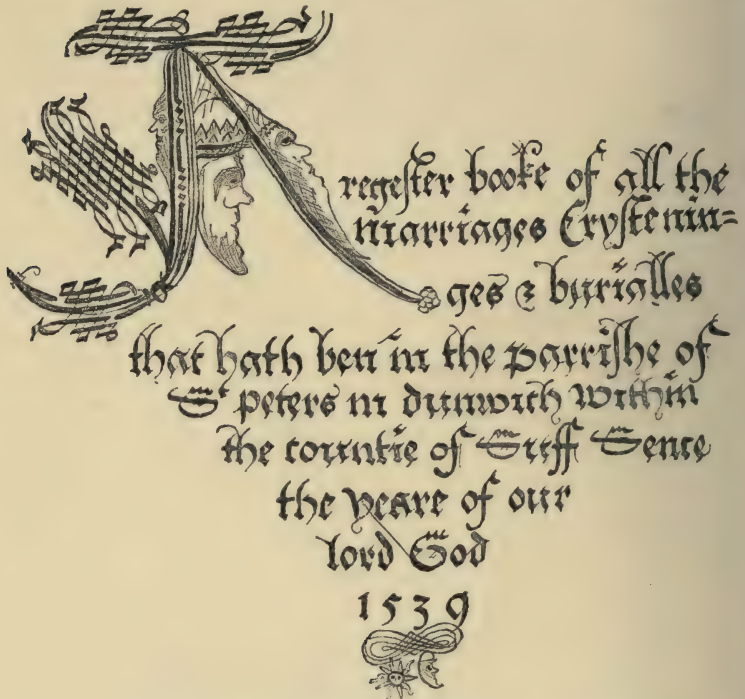 A regester booke of all the
marriages Crystenin=
ges & burialles
that hath ben in the parrishe of
St peters in dunwich within
the countie of Suff Sence
the yeare of our
lord God
1539